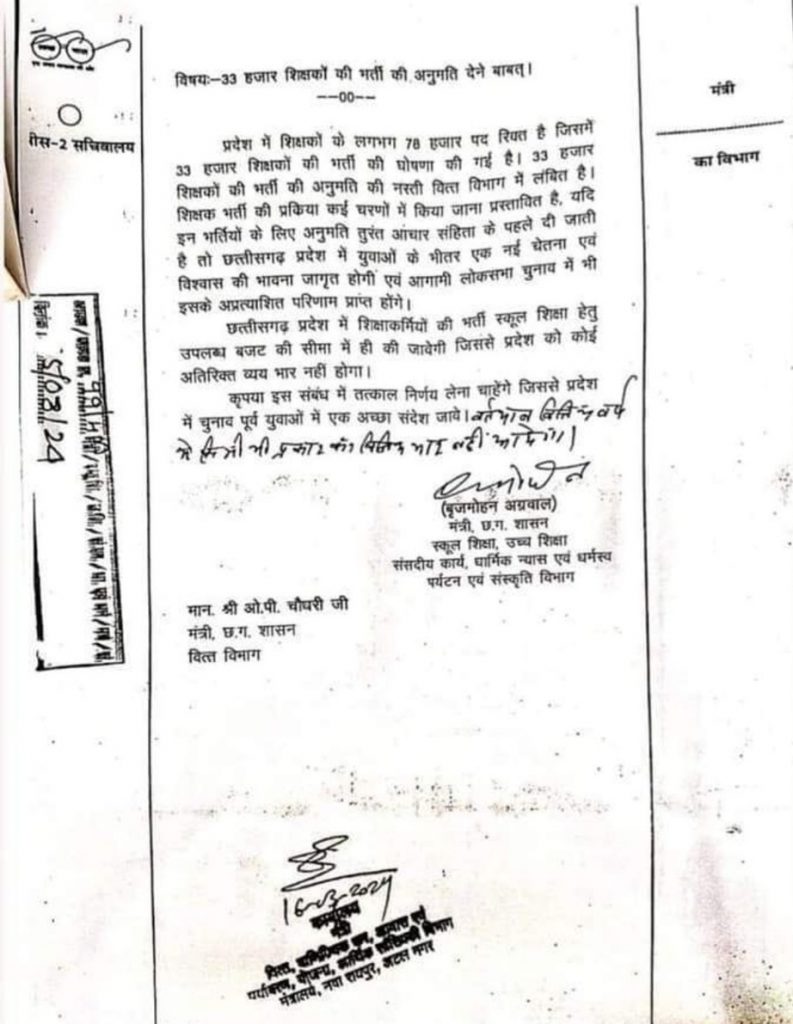 विषयः–33 हजार शिक्षकों की भर्ती की अनुमति देने बाबत्।
––00––
मंत्री
रीस-2 सचिवालय
का विभाग
प्रदेश में शिक्षकों के लगभग 78 हजार पद रिक्त है जिसमें
33 हजार शिक्षकों की भर्ती की घोषणा की गई है। 33 हजार
शिक्षकों की भर्ती की अनुमति की नस्ती वित्त विभाग में लंबित है।
शिक्षक भर्ती की प्रकिया कई चरणों में किया जाना प्रस्तावित है, यदि
इन भर्तियों के लिए अनुमति तुरंत आचार संहिता के पहले दी जाती
है तो छत्तीसगढ़ प्रदेश में युवाओं के भीतर एक नई चेतना एवं
विश्वास की भावना जागृत होगी एवं आगामी लोकसभा चुनाव में भी
इसके अप्रत्याशित परिणाम प्राप्त होंगे।
छत्तीसगढ़ प्रदेश में शिक्षाकर्मियों की भर्ती स्कूल शिक्षा हेतु
उपलब्ध बजट की सीमा में ही की जावेगी जिससे प्रदेश को कोई
अतिरिक्त व्यय भार नहीं होगा।
कृपया इस संबंध में तत्काल निर्णय लेना चाहेंगे जिससे प्रदेश
में चुनाव पूर्व युवाओं में एक अच्छा संदेश जावे। वर्तमान वित्तिय वर्ष
मे किसी भी प्रकार का वित्तिय भार नहीं आयेगा।
(बृजमोहन अग्रवाल)
मंत्री, छ.ग. शासन
स्कूल शिक्षा, उच्च शिक्षा
संसदीय कार्य, धार्मिक न्यास एवं धर्मस्व
पर्यटन एवं संस्कृति विभाग
मान. श्री ओ.पी. चौधरी जी
मंत्री, छ.ग. शासन
वित्त विभाग
दिनांक।
16-03-2024
कार्यालय
मंत्री
वित्त, वाणिज्यिक कर, आवास एवं
पर्यावरण, योजना, आर्थिक सांख्यिकी विभाग
मंत्रालय, नवा रायपुर, अटल नगर